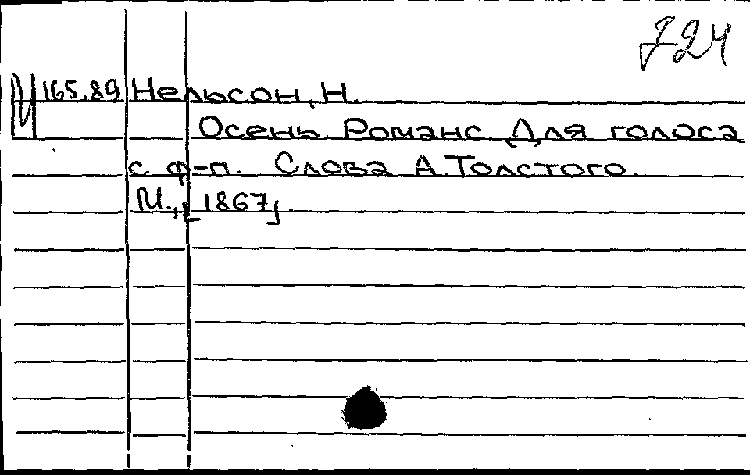 724
М 165.89 Нельсон, Н.
Осень Романс Для голоса
с ф-п. Слова А.Толстого.
М., [1867].